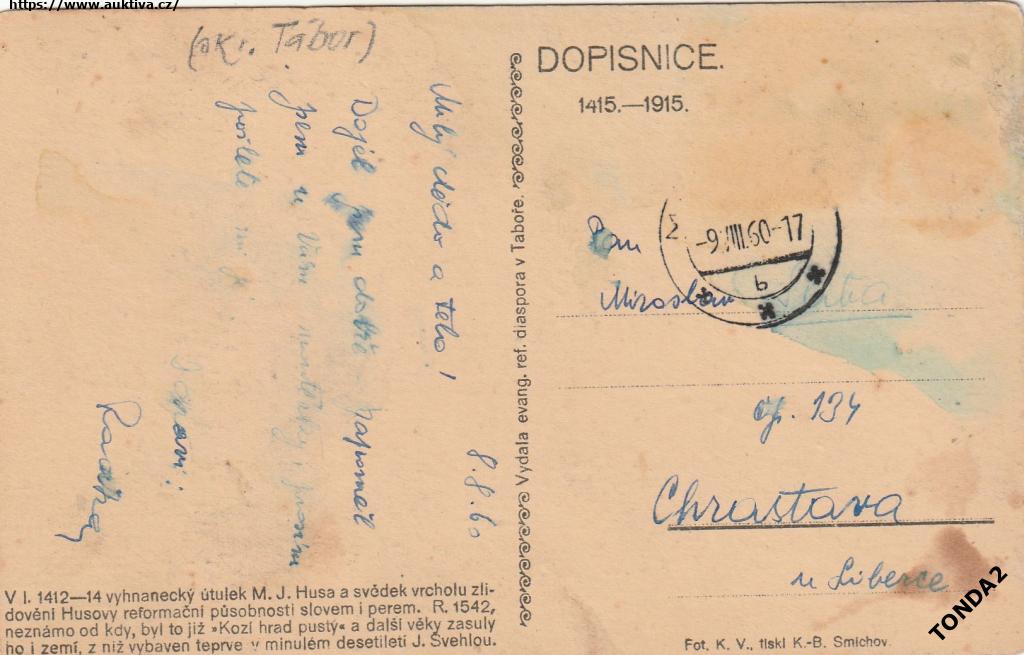 https://www.auktiva.cz/
(okr. Tábor)
Milý dědo a
8.8.60
Dojel jsem dobře
jsem u Vás prosím
pošlete mi ji
DOPISNICE.
1415.—1915.
Vydala evang. ref. diaspora v Taboře.
-9.VIII.60-17
b
Pan
Miroslav
čp. 134
Chrastava
u Liberce
V l. 1412—14 vyhnanecký útulek M. J. Husa a svědek vrcholu zli-
dovění Husovy reformační působnosti slovem i perem. R. 1542,
neznámo od kdy, byl to již »Kozí hrad pustý« a další věky zasuly
ho i zemí, z níž vybaven teprve v minulém desetiletí J. Švehlou.
Fot. K. V., tiskl K.-B. Smíchov.
TONDA2